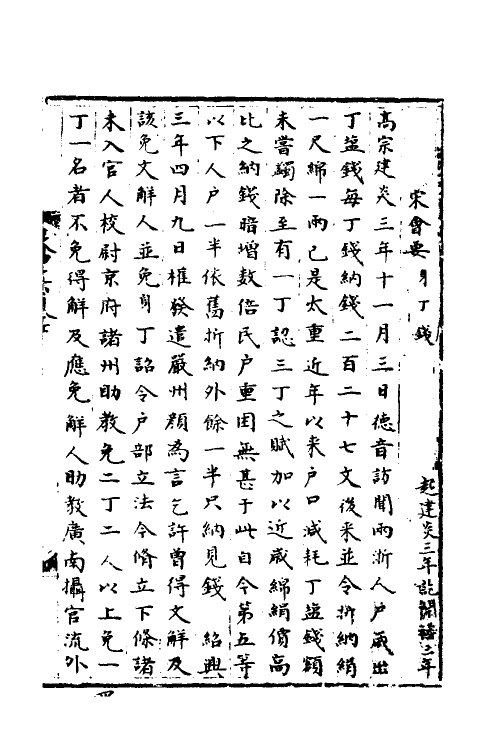 宋會要 身丁錢 起建炎三年訖開禧二年
高宗建炎三年十一月三日德音訪聞兩浙人戶歲出
丁塩錢每丁錢納錢二百二十七文後來並令折納絹
一尺綿一兩已是太重近年以來戶口減耗丁塩錢額
未嘗蠲除至有一丁認三丁之賦加以近歲綿絹價高
比之納錢暗增数倍民戶重困無甚于此自今第五等
以下人戶一半依舊折納外餘一半只納見錢 紹興
三年四月九日權發遣嚴州顔為言乞許曽得文解及
該免文解人並免身丁詔令戶部立法今脩立下條諸
未入官人校尉京府諸州助教免二丁二人以上免一
丁一名者不免得解及應免解人助教廣南攝官流外